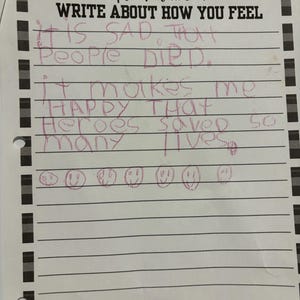 WRITE ABOUT HOW YOU FEEL
it IS SAD That
People DIED.
it makes me
HAPPY THAT
Heroes saved so
many lives.